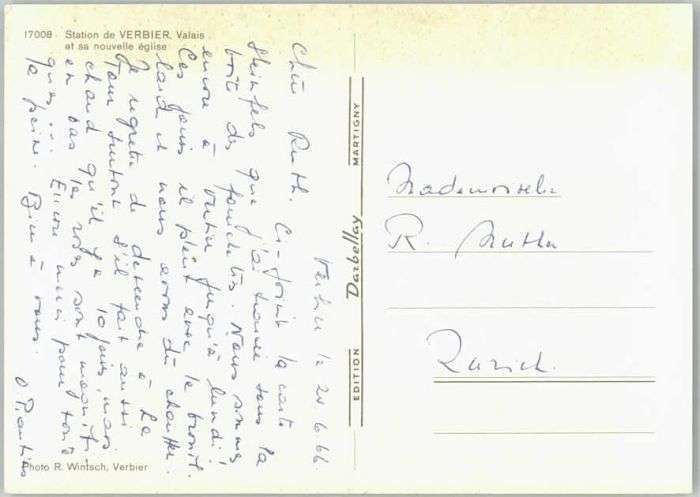 17008 - Station de VERBIER, Valais
et sa nouvelle église
Verbier le 24.6.66
Chère Ruth. Ci-joint la carte
que j'ai trouvée sous la
boîte des. Nous sommes
encore à Verbier jusqu'à lundi!
Ces jours il pleut avec le
et nous avons dû chauffer.
Je regrette de descendre à La
Tour surtout s'il fait aussi
chaud qu'il y a 10 jours, mais
en bas les roses sont magnifi-
ques... Encore merci pour toute
la peine. Bien à vous.
Photo R. Wintsch, Verbier
EDITION Darbellay MARTIGNY
Mademoiselle
R.
Zurich.